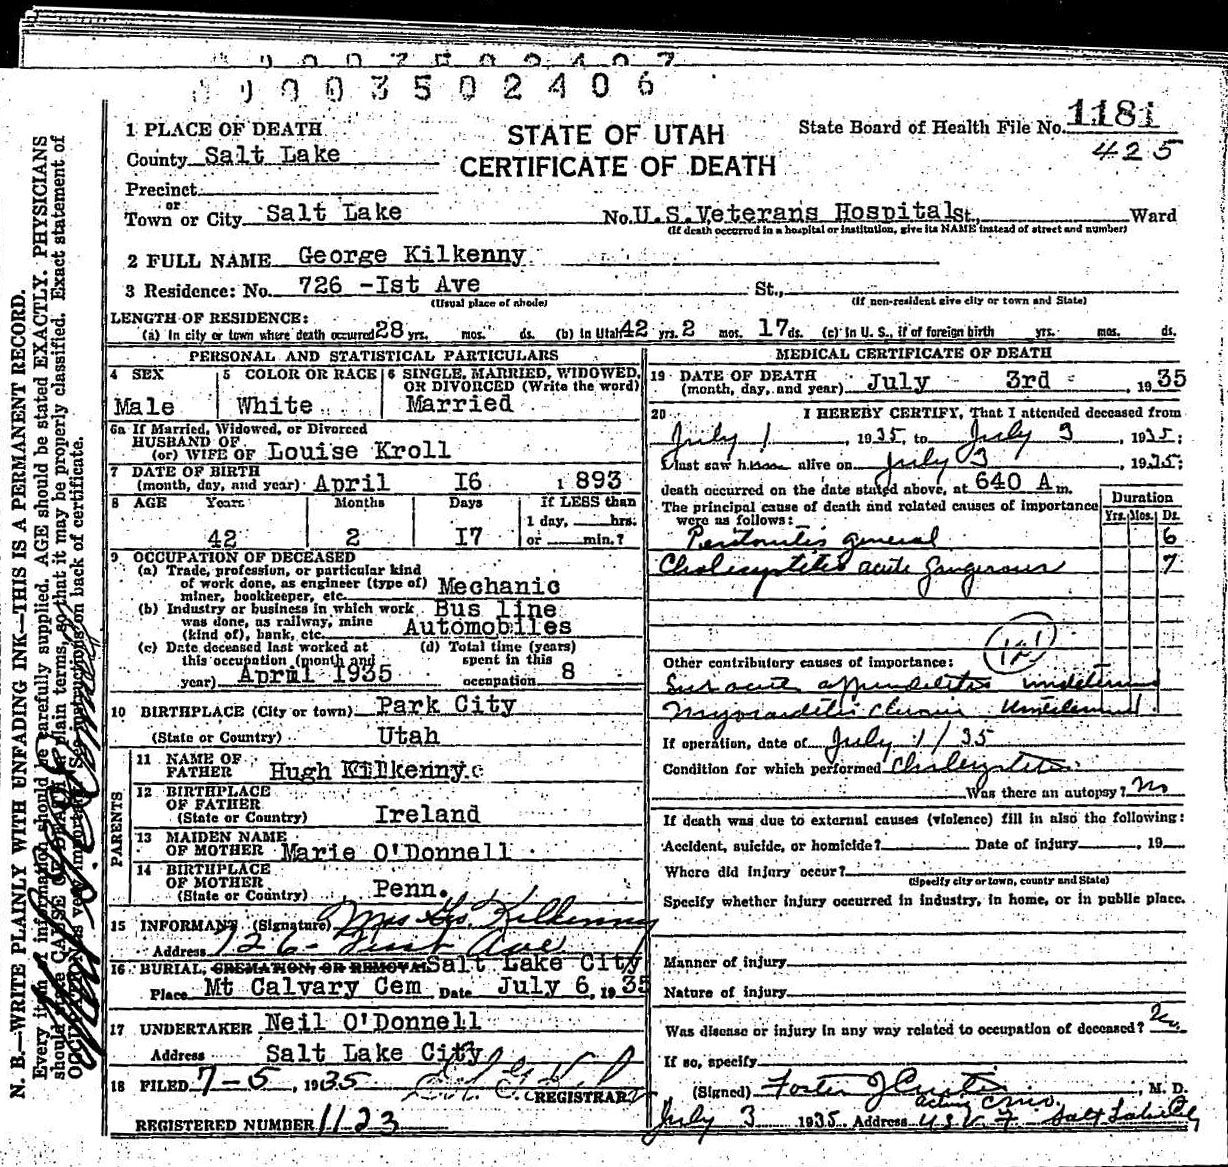 0003502407
0003502406
1 PLACE OF DEATH
STATE OF UTAH
CERTIFICATE OF DEATH
State Board of Health File No. 1181
425
County Salt Lake
Precinct
or
Town or City Salt Lake No. U.S.Veterans Hospital St., Ward
(If death occurred in a hospital or institution, give its NAME instead of street and number)
2 FULL NAME George Kilkenny
3 Residence: No. 726 -Ist Ave St.,
(Usual place of abode) (If non-resident give city or town and State)
LENGTH OF RESIDENCE:
(a) In city or town where death occurred 28 yrs. mos. ds. (b) In Utah 42 yrs. 2 mos. 17 ds. (c) In U. S., if of foreign birth yrs. mos. ds.
PERSONAL AND STATISTICAL PARTICULARS
4 SEX 5 COLOR OR RACE 6 SINGLE, MARRIED, WIDOWED, OR DIVORCED (Write the word)
Male White Married
6a If Married, Widowed, or Divorced
HUSBAND OF
(or) WIFE OF Louise Kroll
7 DATE OF BIRTH
(month, day, and year) April I6 1893
8 AGE Years Months Days If LESS than
1 day, hrs.
or min.?
42 2 I7
9 OCCUPATION OF DECEASED
(a) Trade, profession, or particular kind
of work done, as engineer (type of)
miner, bookkeeper, etc. Mechanic
(b) Industry or business in which work
was done, as railway, mine
(kind of), bank, etc. Bus line
Automobiles
(c) Date deceased last worked at
this occupation (month and
year) April 1935
(d) Total time (years)
spent in this
occupation 8
10 BIRTHPLACE (City or town) Park City
(State or Country) Utah
PARENTS
11 NAME OF
FATHER Hugh Kilkenny
12 BIRTHPLACE
OF FATHER
(State or Country) Ireland
13 MAIDEN NAME
OF MOTHER Marie O'Donnell
14 BIRTHPLACE
OF MOTHER
(State or Country) Penn.
15 INFORMANT (Signature) Mrs Geo. Kilkenny
Address 726- First Ave
16 BURIAL, CREMATION, OR REMOVAL Salt Lake City
Place Mt Calvary Cem Date July 6, 1935
17 UNDERTAKER Neil O'Donnell
Address Salt Lake City
18 FILED 7-5, 1935
REGISTRAR
REGISTERED NUMBER 1123
MEDICAL CERTIFICATE OF DEATH
19 DATE OF DEATH
(month, day, and year) July 3rd 1935
20 I HEREBY CERTIFY, That I attended deceased from
July 1, 1935, to July 3, 1935;
I last saw him alive on July 3, 1935;
death occurred on the date stated above, at 640 A m.
The principal cause of death and related causes of importance
were as follows:
Duration
Yrs. Mos. Ds.
Peritonitis general 6
Cholecystitis acute gangerous 7
121
Other contributory causes of importance:
Sub acute appendicitis undeterm
Myocarditis chronic undeterm
If operation, date of July 1/35
Condition for which performed Cholecystitis
Was there an autopsy? No
If death was due to external causes (violence) fill in also the following:
Accident, suicide, or homicide? Date of injury , 19
Where did injury occur?
(Specify city or town, county and State)
Specify whether injury occurred in industry, in home, or in public place.
Manner of injury
Nature of injury
Was disease or injury in any way related to occupation of deceased? No
If so, specify
(Signed) Foster J Curtis, M. D.
acting C.M.O.
July 3 1935 Address U.S.V.F. Salt Lake City
N. B.—WRITE PLAINLY WITH UNFADING INK—THIS IS A PERMANENT RECORD.
Every item of information should be carefully supplied. AGE should be stated EXACTLY. PHYSICIANS
should state CAUSE OF DEATH in plain terms, so that it may be properly classified. Exact statement of
OCCUPATION is very important. See instructions on back of certificate.